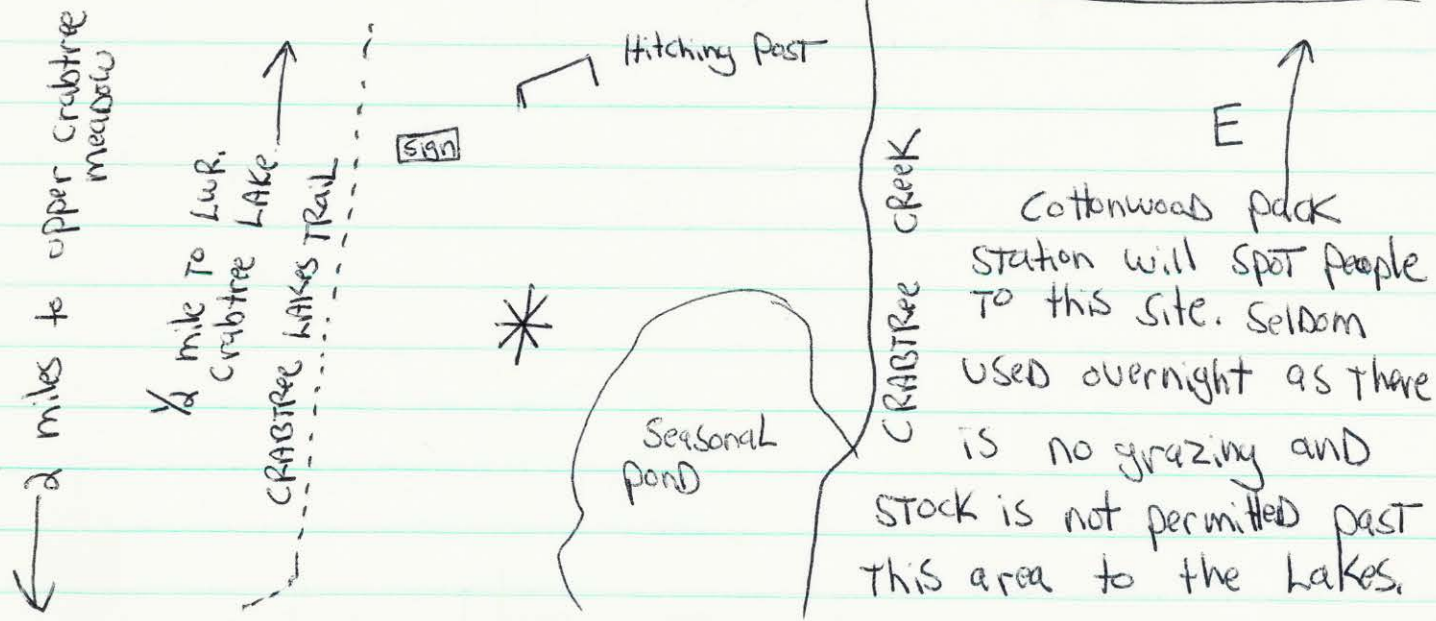 2 miles to upper Crabtree
meadow
½ mile to LWR.
Crabtree LAKE
CRABTREE LAKES TRAIL
Sign
Hitching Post
Seasonal
Pond
CRABTREE CREEK
E
Cottonwood pack
station will spot people
to this site. Seldom
used overnight as there
is no grazing and
stock is not permitted past
this area to the Lakes.